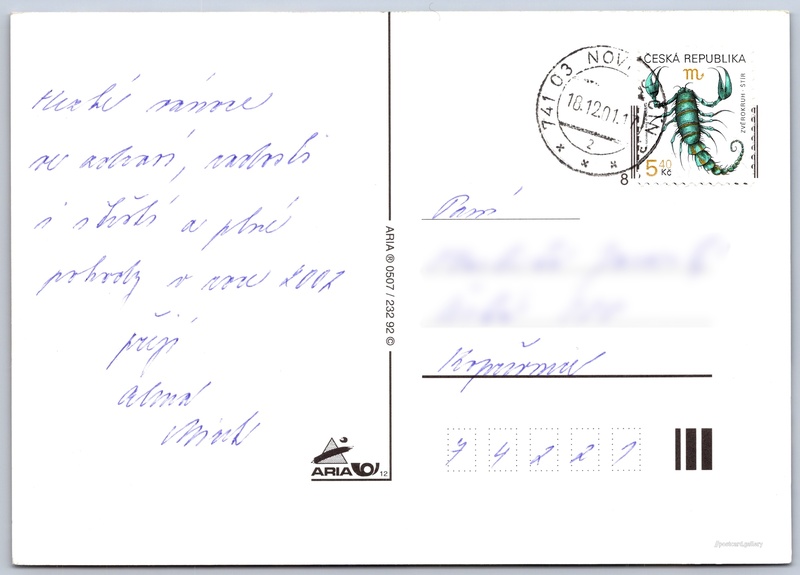 Hezké vánoce
ve zdraví, radosti
i štěstí a plné
pohody v roce 2002
přejí
ARIA ® 0507 / 232 92 ©
ARIA
12
741 03 NOV
18.12.01.1
2
ČESKÁ REPUBLIKA
ZVĚROKRUH - ŠTÍR
5 40 Kč
8
Paní
Kopřivnice
7 4 2 2 1